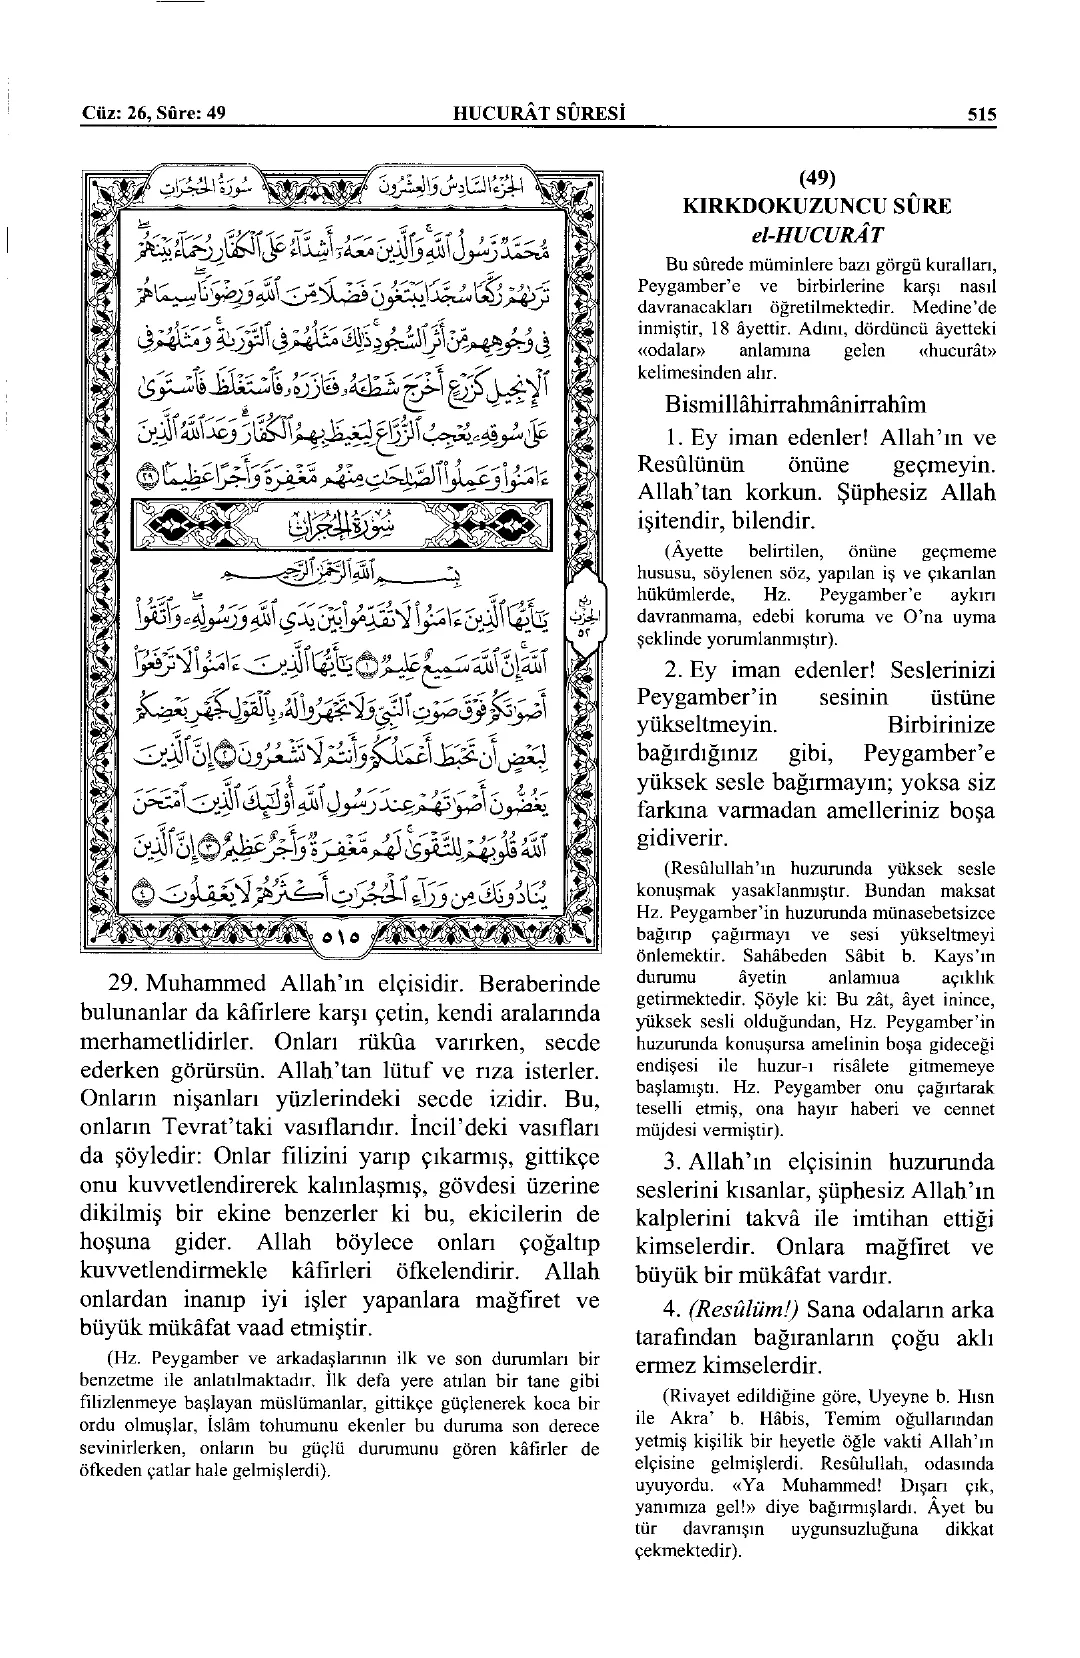 Cüz: 26, Sûre: 49 HUCURÂT SÛRESİ 515
سُورَةُ الحُجُرَاتِ الجُزْءُ السَّادِسُ وَالعِشْرُونَ
مُّحَمَّدٌ رَّسُولُ ٱللَّهِ وَٱلَّذِينَ مَعَهُۥٓ أَشِدَّآءُ عَلَى ٱلْكُفَّارِ رُحَمَآءُ بَيْنَهُمْ
تَرَىٰهُمْ رُكَّعًا سُجَّدًا يَبْتَغُونَ فَضْلًا مِّنَ ٱللَّهِ وَرِضْوَٰنًا سِيمَاهُمْ
فِى وُجُوهِهِم مِّنْ أَثَرِ ٱلسُّجُودِ ذَٰلِكَ مَثَلُهُمْ فِى ٱلتَّوْرَىٰةِ وَمَثَلُهُمْ فِى
ٱلْإِنجِيلِ كَزَرْعٍ أَخْرَجَ شَطْـَٔهُۥ فَـَٔازَرَهُۥ فَٱسْتَغْلَظَ فَٱسْتَوَىٰ
عَلَىٰ سُوقِهِۦ يُعْجِبُ ٱلزُّرَّاعَ لِيَغِيظَ بِهِمُ ٱلْكُفَّارَ وَعَدَ ٱللَّهُ ٱلَّذِينَ
ءَامَنُوا۟ وَعَمِلُوا۟ ٱلصَّٰلِحَٰتِ مِنْهُم مَّغْفِرَةً وَأَجْرًا عَظِيمًۢا ٢٩
سُورَةُ الحُجُرَاتِ
بِسْمِ ٱللَّهِ ٱلرَّحْمَٰنِ ٱلرَّحِيمِ
يَٰٓأَيُّهَا ٱلَّذِينَ ءَامَنُوا۟ لَا تُقَدِّمُوا۟ بَيْنَ يَدَىِ ٱللَّهِ وَرَسُولِهِۦ وَٱتَّقُوا۟
ٱللَّهَ إِنَّ ٱللَّهَ سَمِيعٌ عَلِيمٌ ١ يَٰٓأَيُّهَا ٱلَّذِينَ ءَامَنُوا۟ لَا تَرْفَعُوٓا۟
أَصْوَٰتَكُمْ فَوْقَ صَوْتِ ٱلنَّبِىِّ وَلَا تَجْهَرُوا۟ لَهُۥ بِٱلْقَوْلِ كَجَهْرِ بَعْضِكُمْ
لِبَعْضٍ أَن تَحْبَطَ أَعْمَٰلُكُمْ وَأَنتُمْ لَا تَشْعُرُونَ ٢ إِنَّ ٱلَّذِينَ
يَغُضُّونَ أَصْوَٰتَهُمْ عِندَ رَسُولِ ٱللَّهِ أُو۟لَٰٓئِكَ ٱلَّذِينَ ٱمْتَحَنَ
ٱللَّهُ قُلُوبَهُمْ لِلتَّقْوَىٰ لَهُم مَّغْفِرَةٌ وَأَجْرٌ عَظِيمٌ ٣ إِنَّ ٱلَّذِينَ
يُنَادُونَكَ مِن وَرَآءِ ٱلْحُجُرَٰتِ أَكْثَرُهُمْ لَا يَعْقِلُونَ ٤
ربع
الحزب
٥٢
٥١٥
29. Muhammed Allah'ın elçisidir. Beraberinde
bulunanlar da kâfirlere karşı çetin, kendi aralarında
merhametlidirler. Onları rükûa varırken, secde
ederken görürsün. Allah'tan lütuf ve rıza isterler.
Onların nişanları yüzlerindeki secde izidir. Bu,
onların Tevrat'taki vasıflarıdır. İncil'deki vasıfları
da şöyledir: Onlar filizini yarıp çıkarmış, gittikçe
onu kuvvetlendirerek kalınlaşmış, gövdesi üzerine
dikilmiş bir ekine benzerler ki bu, ekicilerin de
hoşuna gider. Allah böylece onları çoğaltıp
kuvvetlendirmekle kâfirleri öfkelendirir. Allah
onlardan inanıp iyi işler yapanlara mağfiret ve
büyük mükâfat vaad etmiştir.
(Hz. Peygamber ve arkadaşlarının ilk ve son durumları bir
benzetme ile anlatılmaktadır. İlk defa yere atılan bir tane gibi
filizlenmeye başlayan müslümanlar, gittikçe güçlenerek koca bir
ordu olmuşlar, İslâm tohumunu ekenler bu duruma son derece
sevinirlerken, onların bu güçlü durumunu gören kâfirler de
öfkeden çatlar hale gelmişlerdi).
(49)
KIRKDOKUZUNCU SÛRE
el-HUCURÂT
Bu sûrede müminlere bazı görgü kuralları,
Peygamber'e ve birbirlerine karşı nasıl
davranacakları öğretilmektedir. Medine'de
inmiştir, 18 âyettir. Adını, dördüncü âyetteki
«odalar» anlamına gelen «hucurât»
kelimesinden alır.
Bismillâhirrahmânirrahîm
1. Ey iman edenler! Allah'ın ve
Resûlünün önüne geçmeyin.
Allah'tan korkun. Şüphesiz Allah
işitendir, bilendir.
(Âyette belirtilen, önüne geçmeme
hususu, söylenen söz, yapılan iş ve çıkarılan
hükümlerde, Hz. Peygamber'e aykırı
davranmama, edebi koruma ve O'na uyma
şeklinde yorumlanmıştır).
2. Ey iman edenler! Seslerinizi
Peygamber'in sesinin üstüne
yükseltmeyin. Birbirinize
bağırdığınız gibi, Peygamber'e
yüksek sesle bağırmayın; yoksa siz
farkına varmadan amelleriniz boşa
gidiverir.
(Resûlullah'ın huzurunda yüksek sesle
konuşmak yasaklanmıştır. Bundan maksat
Hz. Peygamber'in huzurunda münasebetsizce
bağırıp çağırmayı ve sesi yükseltmeyi
önlemektir. Sahâbeden Sâbit b. Kays'ın
durumu âyetin anlamıua açıklık
getirmektedir. Şöyle ki: Bu zât, âyet inince,
yüksek sesli olduğundan, Hz. Peygamber'in
huzurunda konuşursa amelinin boşa gideceği
endişesi ile huzur-ı risâlete gitmemeye
başlamıştı. Hz. Peygamber onu çağırtarak
teselli etmiş, ona hayır haberi ve cennet
müjdesi vermiştir).
3. Allah'ın elçisinin huzurunda
seslerini kısanlar, şüphesiz Allah'ın
kalplerini takvâ ile imtihan ettiği
kimselerdir. Onlara mağfiret ve
büyük bir mükâfat vardır.
4. (Resûlüm!) Sana odaların arka
tarafından bağıranların çoğu aklı
ermez kimselerdir.
(Rivayet edildiğine göre, Uyeyne b. Hısn
ile Akra' b. Hâbis, Temim oğullarından
yetmiş kişilik bir heyetle öğle vakti Allah'ın
elçisine gelmişlerdi. Resûlullah, odasında
uyuyordu. «Ya Muhammed! Dışarı çık,
yanımıza gel!» diye bağırmışlardı. Âyet bu
tür davranışın uygunsuzluğuna dikkat
çekmektedir).